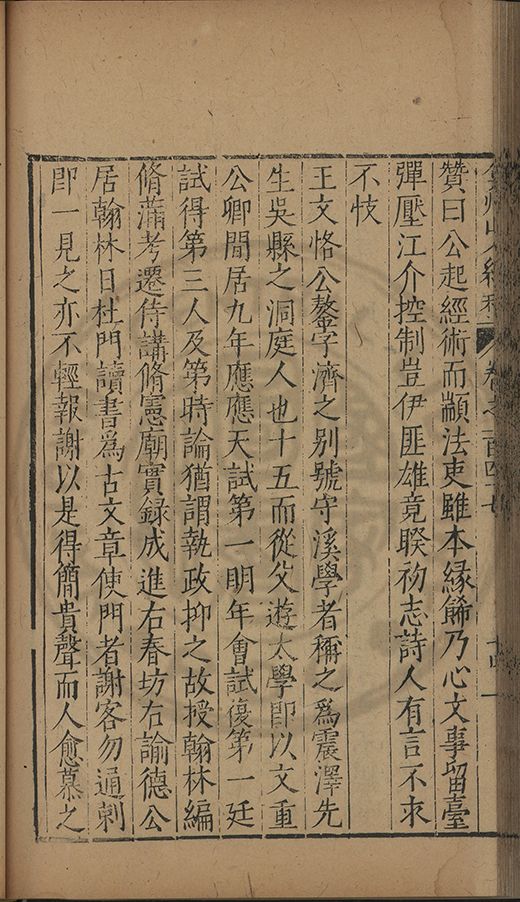 弇州山人續稿 卷之一百四十七 十四
贊曰公起經術而顓法吏雖本緣餙乃心文事留臺
彈壓江介控制豈伊匪雄竟睽初志詩人有言不求
不忮
王文恪公鏊字濟之别號守溪學者稱之爲震澤先
生吳縣之洞庭人也十五而從父遊太學即以文重
公卿間居九年應應天試第一明年會試復第一廷
試得第三人及第時論猶謂執政抑之故授翰林編
脩滿考遷侍講脩憲廟實録成進右春坊右諭德公
居翰林日杜門讀書爲古文章使門者謝客勿通刺
即一見之亦不輕報謝以是得簡貴聲而人愈慕之